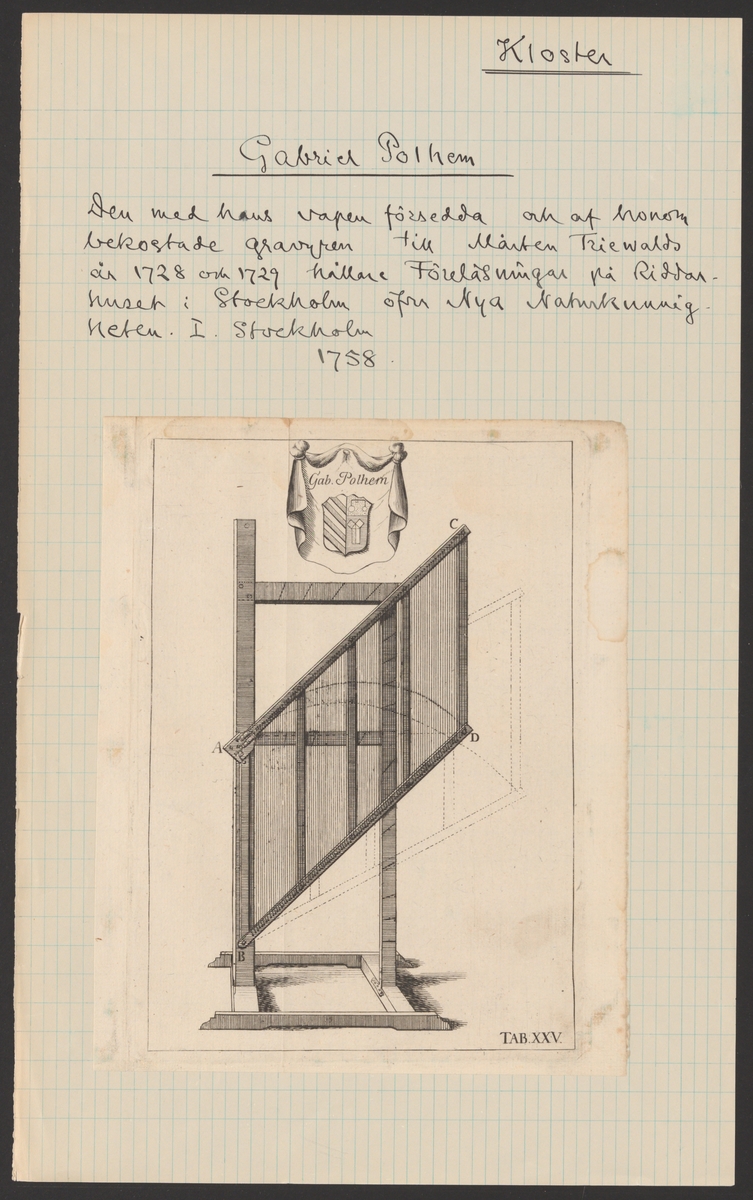 Kloster
Gabriel Polhem
Den med hans vapen försedda och af honom
bekostade gravyren till Mårten Triewalds
år 1728 och 1729 hållne Föreläsningar på Riddar-
huset i Stockholm öfver Nya Naturkunnig-
heten. I. Stockholm
1758.
Gab. Polhem
C
A
D
B
TAB.XXV.